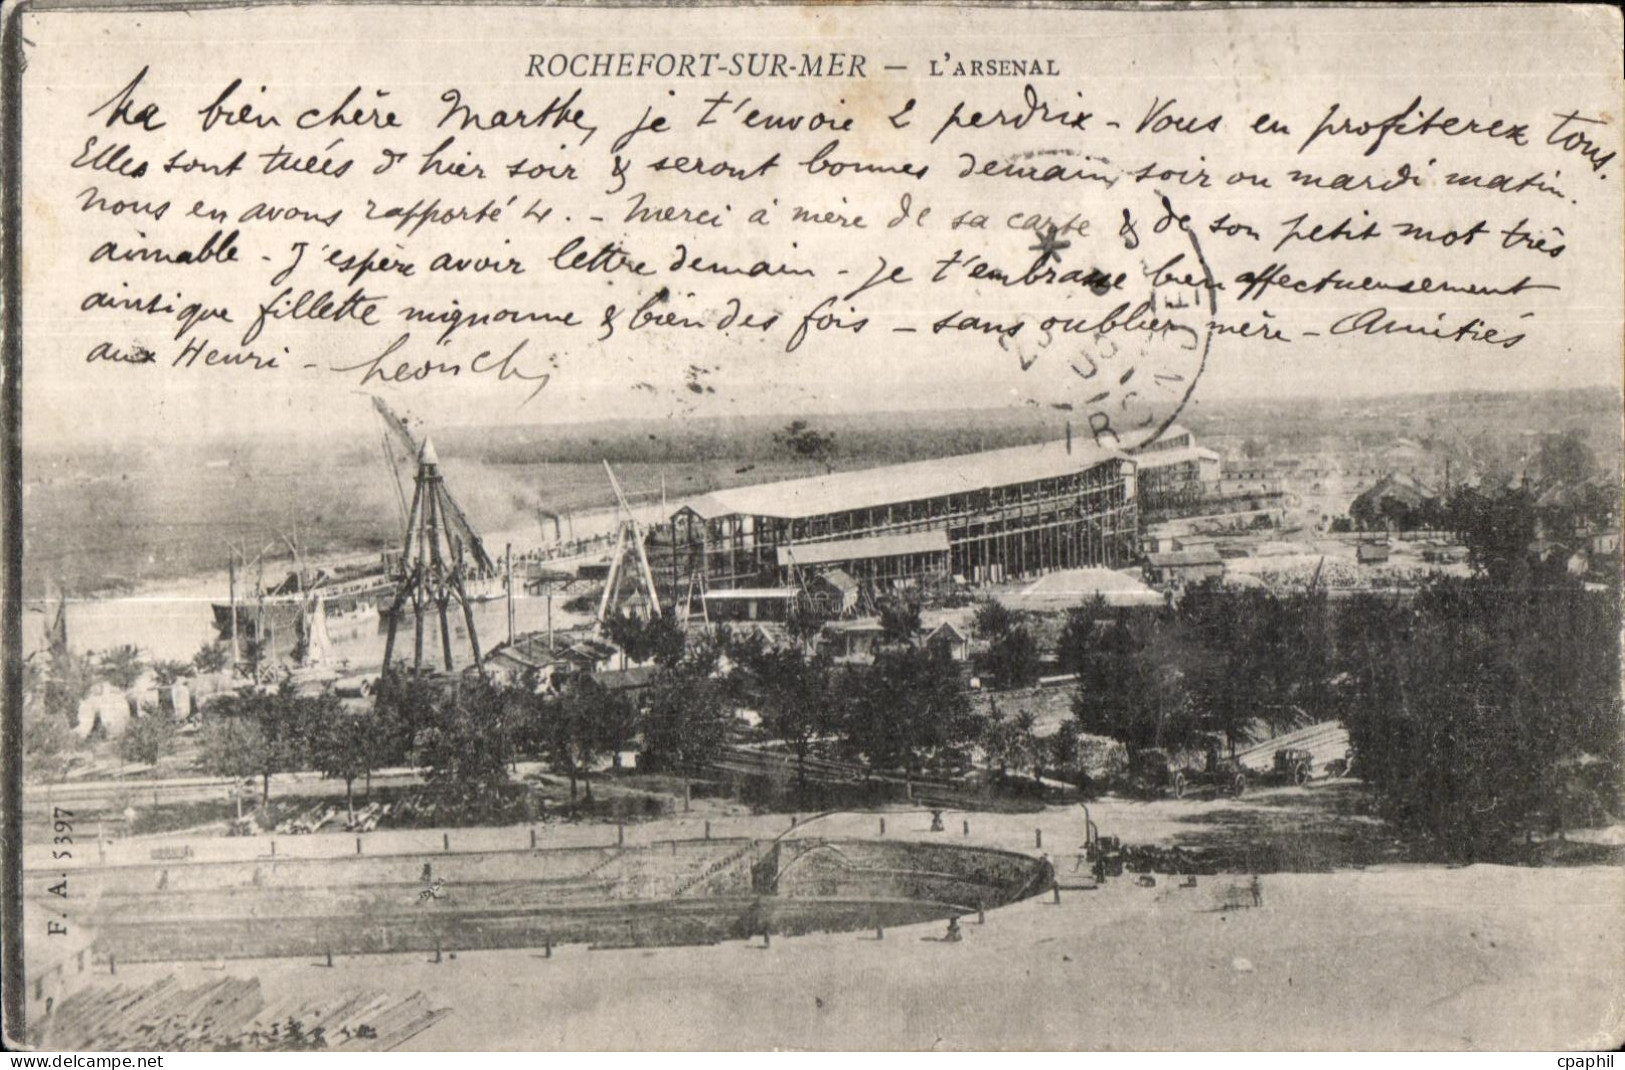 ROCHEFORT-SUR-MER — L'ARSENAL
Ma bien chère Marthe, je t'envoie 2 perdrix - Vous en profiterez tous.
Elles sont tuées d'hier soir & seront bonnes demain soir ou mardi matin.
Nous en avons rapporté 4. - Merci à mère de sa carte & de son petit mot très
aimable - J'espère avoir lettre demain - Je t'embrasse bien affectueusement
ainsi que fillette mignonne & bien des fois - sans oublier mère - Amitiés
aux Henri -
F. A. 5397
cpaphil